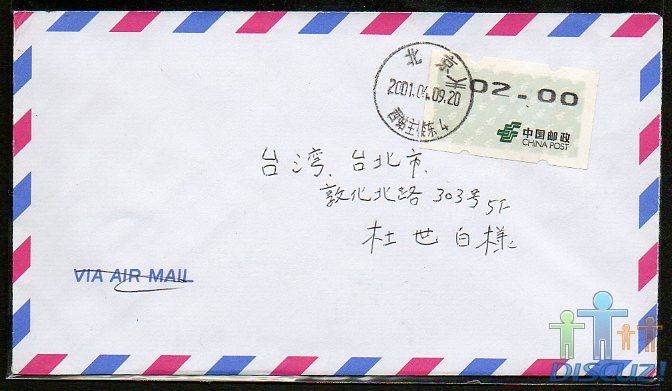 北京
2001.04.09.20
02.00
中国邮政
CHINA POST
台湾、台北市、
敦化北路 303号 5F
杜世白様
VIA AIR MAIL
DISCUZ!